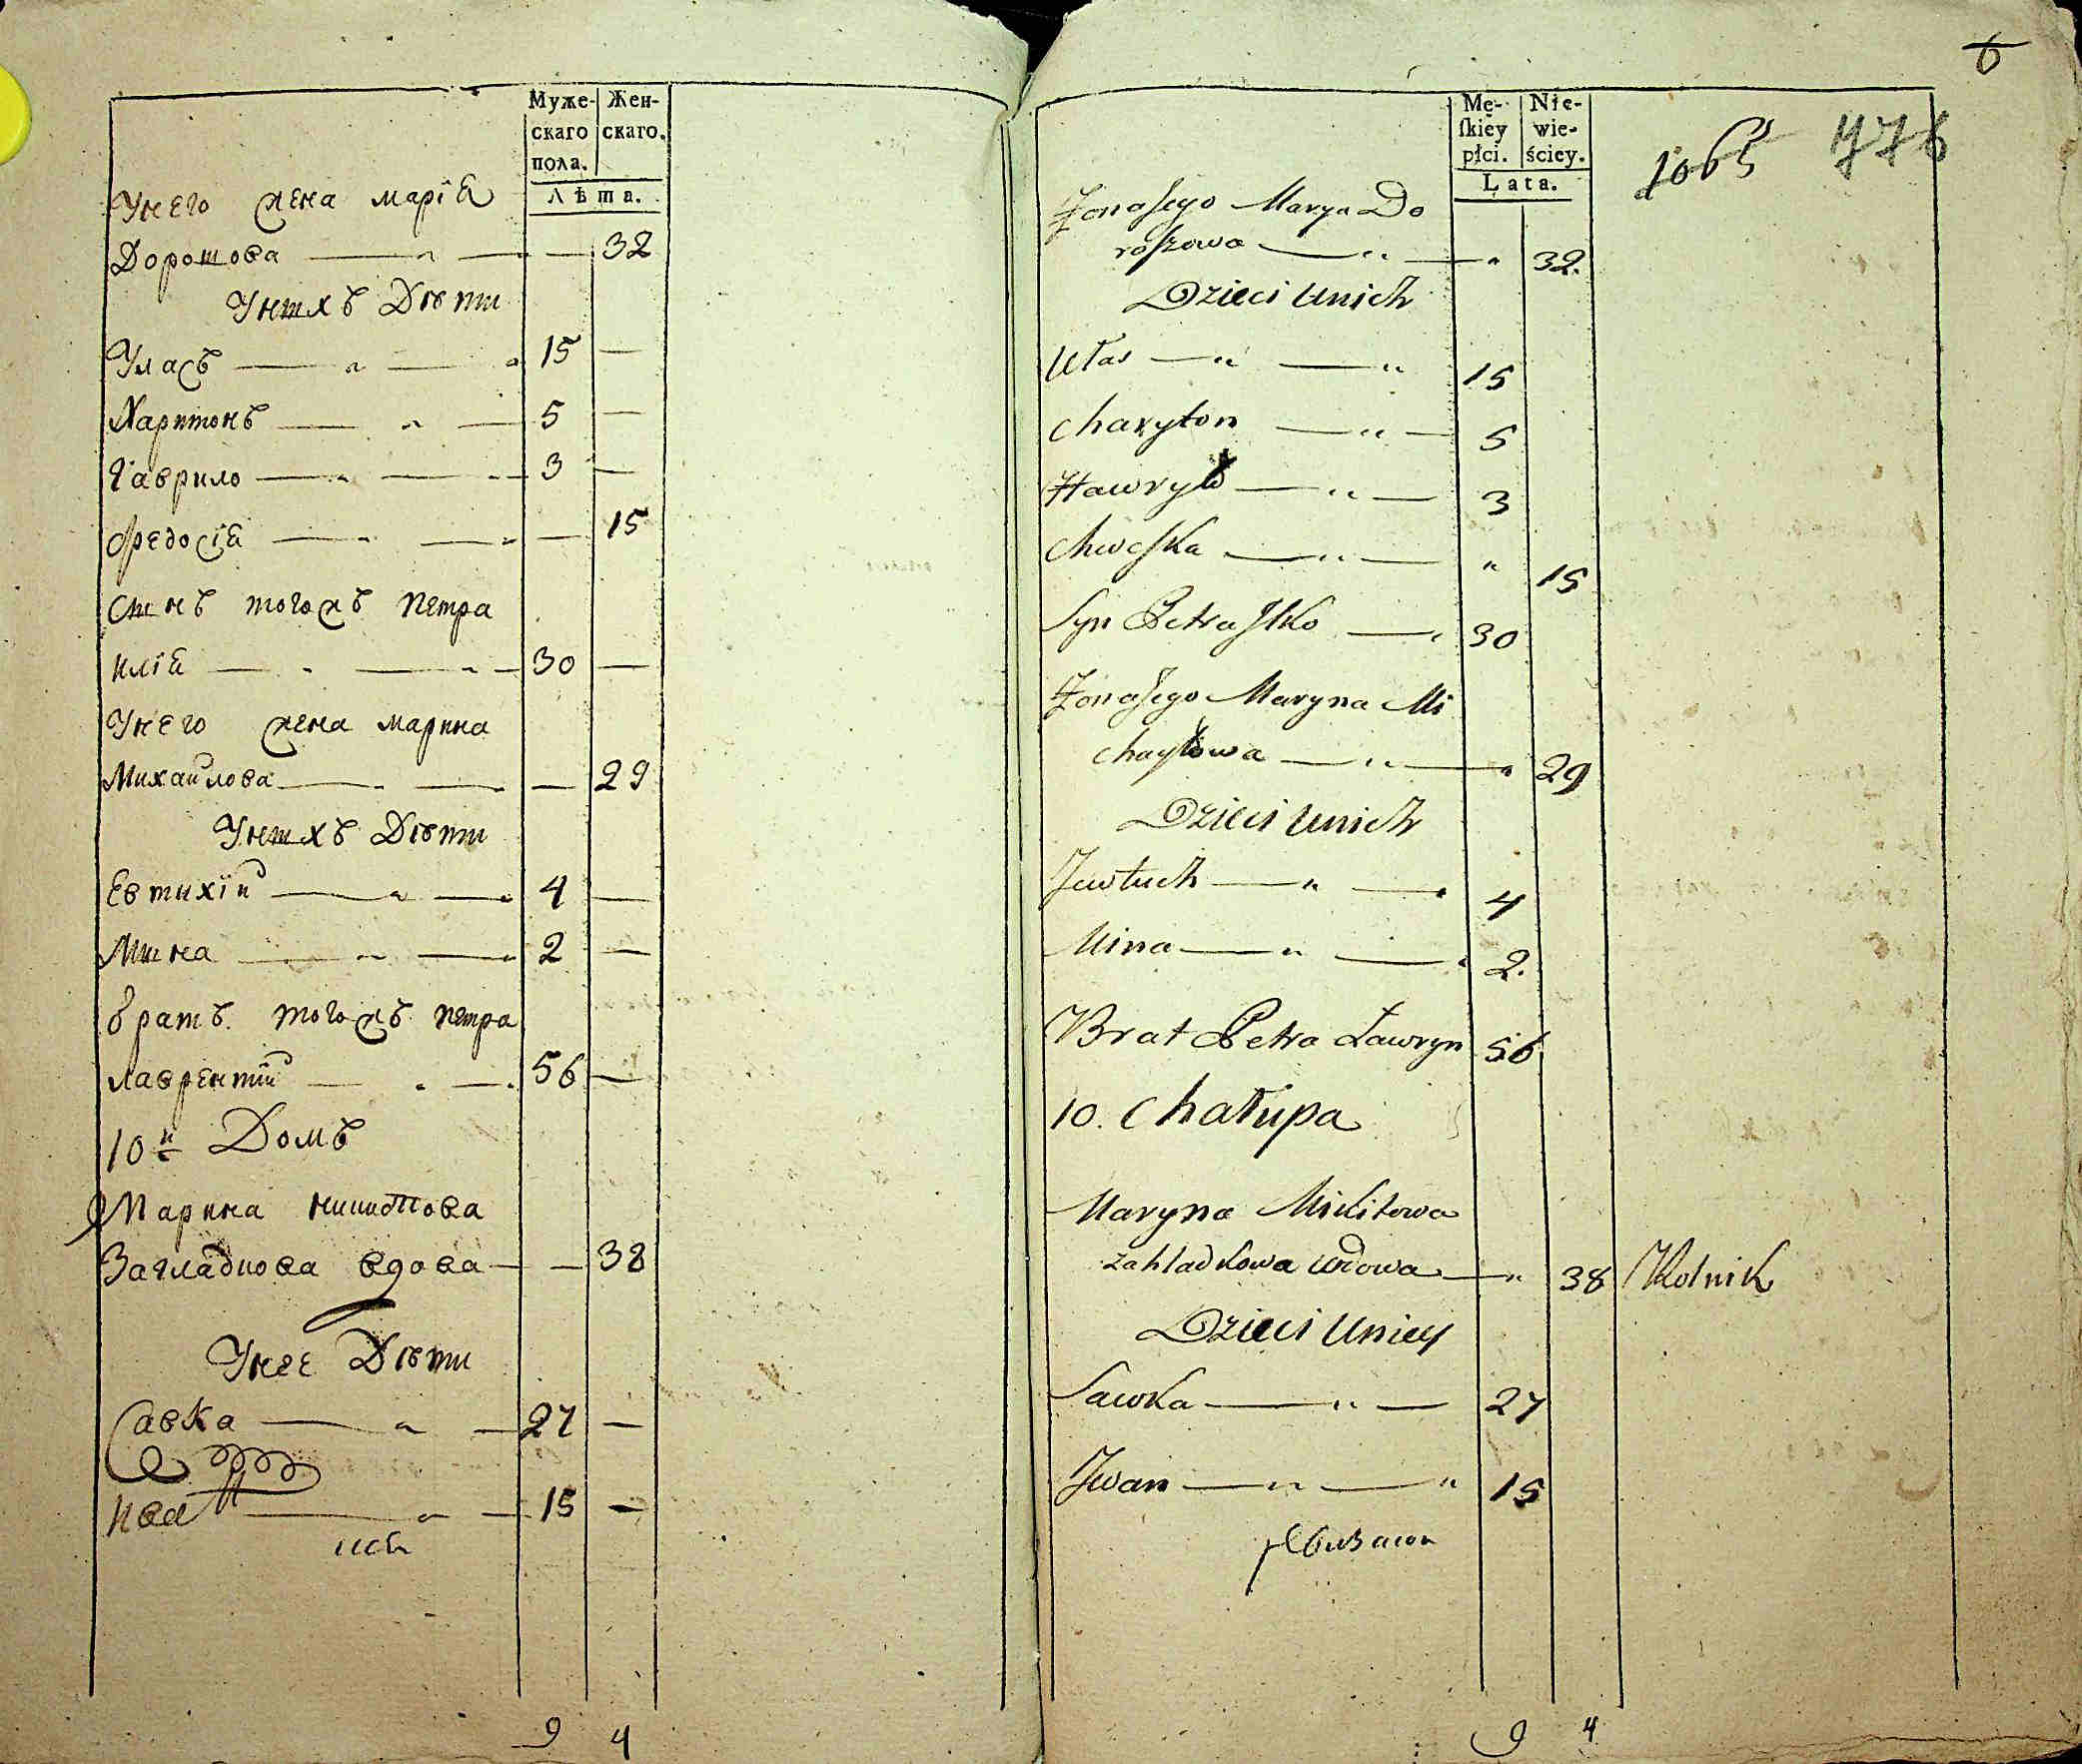 Муже-
скаго
пола.
Жен-
скаго.
Лѣта.
Унего жена маріа
Дорошова — — 32
Унихъ Дѣти
Уласъ — 15 —
Харитонъ — 5 —
Гаврило — 3 —
Федосіа — — 15
Сынъ тогожъ Петра
илія — 30 —
Унего жена марина
Михайлова — — 29
Унихъ Дѣти
Евтихій — 4 —
Мина — 2 —
братъ тогожъ петра
лаврентій — 56 —
10й Домъ
Марина никитова
Загладкова вдова — — 38
Унее Дѣти
Савка — 27 —
Иван — 15 —
9 4
6
1065 776
Mę-
ſkiey
płci.
Nie-
wie-
ściey.
Lata.
Żona Jego Marya Do
roszowa — " 32.
Dzieci Unich
Ułas — 15
Charyton — 5
Hawryło — 3
Chweśka — " 15
Syn Petra Ilko — 30
Żona Jego Maryna Mi
chayłowa — " 29
Dzieci Unich
Jewtuch — 4
Mina — 2.
Brat Petra Ławryn 56
10. Chałupa
Maryna Mikitowa
Zahladkowa Wdowa — " 38 Rolnik
Dzieci Uniey
Sawka — 27
Iwan — 15
9 4